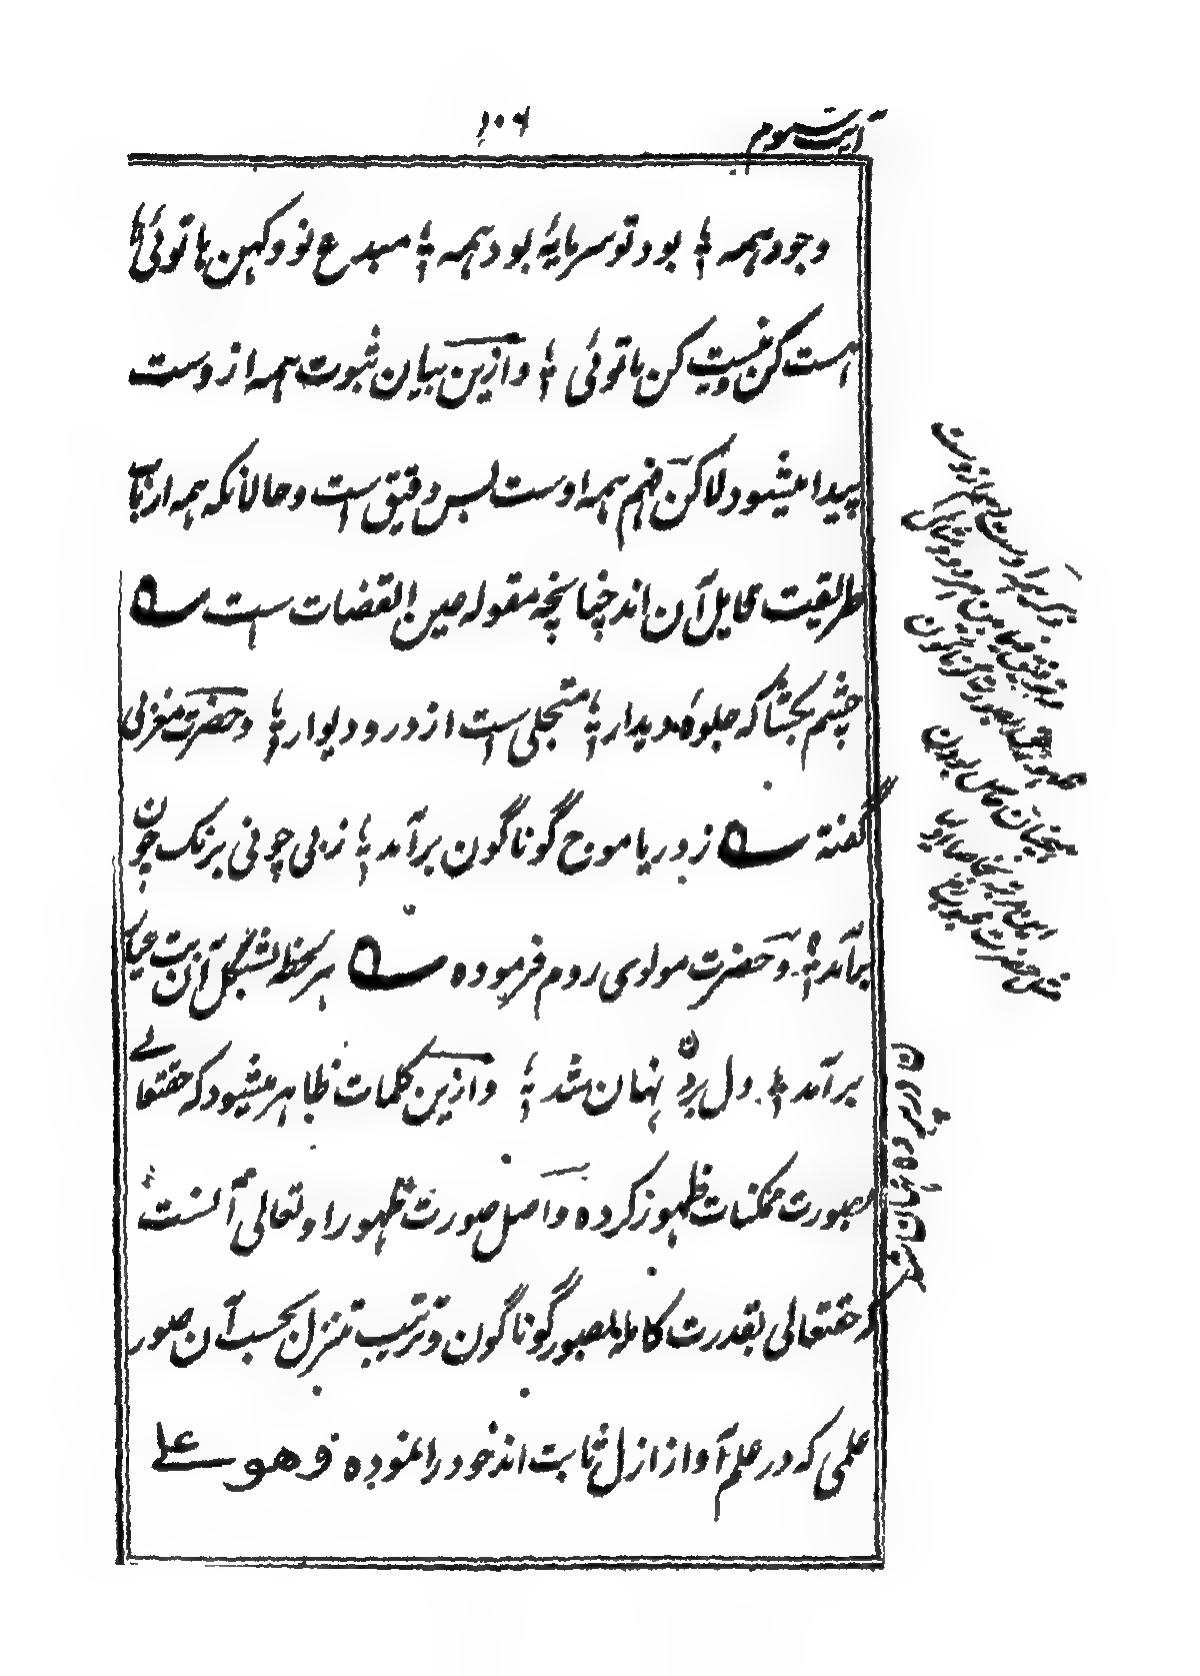 آیت سوم
۱۰۶
وجود همه ؛ بود تو سرمایهٔ بود همه ؛ مبدع نو و کهن ما توئی ؛
هست کن و نیست کن ما توئی ؛ و ازین بیان ثبوت همه از وست
پیدا میشود لاکن فهم همه اوست بس دقیق است و حالانکه همه ارباب
طریقت قایل آن اند چنانچه مقوله عین القضات است
چشم بکشا که جلوهٔ دیدار ؛ متجلی است از در و دیوار ؛ و حضرت مغربی
گفته ز دریا موج گوناگون برآمد ؛ ز بی چونی برنگ چون
برآمد ؛ و حضرت مولوی روم فرموده هر لحظه بشکل آن بت عیار
برآمد ؛ دل برد و نهان شد ؛ و ازین کلمات ظاهر میشود که حقتعالی
بصورت ممکنات ظهور کرده و اصل صورت ظهور او تعالی آنست
که حقتعالی بقدرت کامله بصور گوناگون و ترتیب تنزل بحسب آن صور
علمی که در علم او از ازل ثابت اند خود را نموده وهو علی